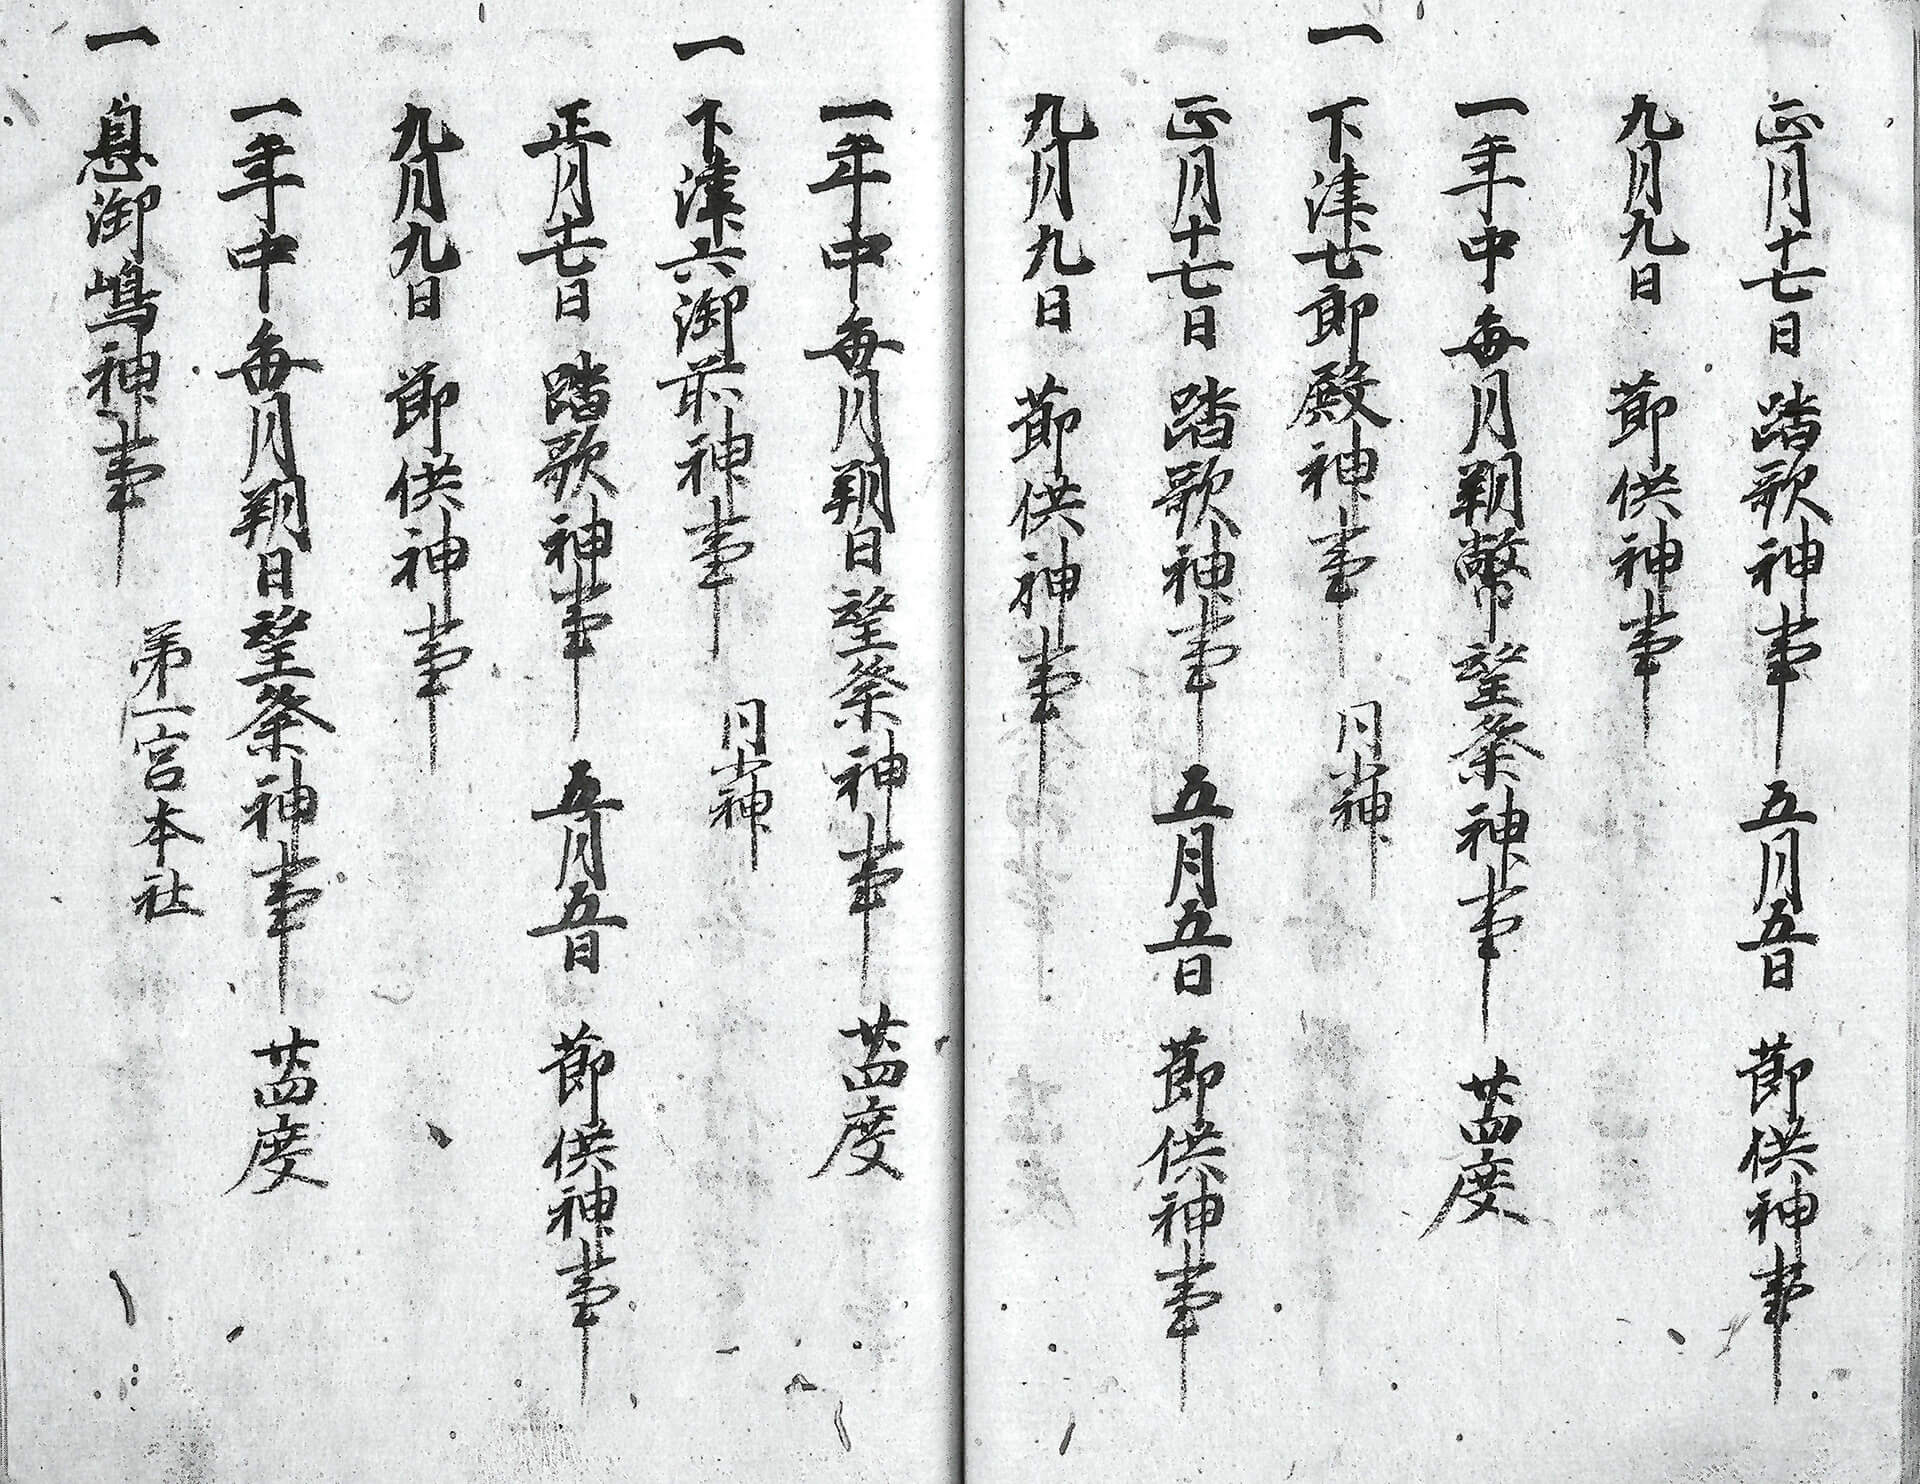 正月十七日 踏歌神事 五月五日 節供神事
九月九日 節供神事
一年中毎月朔幣望祭神事 廿四度
一 下津七郎殿神事 同小神
正月十七日 踏歌神事 五月五日 節供神事
九月九日 節供神事
一年中毎月朔日望祭神事 廿四度
一 下津六御前神事 同小神
正月十七日 踏歌神事 五月五日 節供神事
九月九日 節供神事
一年中毎月朔日望祭神事 廿四度
一 息御嶋神事 第一宮本社